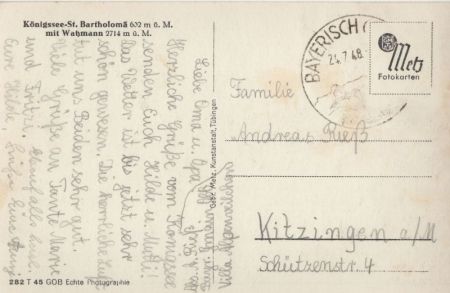 Königssee-St. Bartholomä 602 m ü. M.
mit Watzmann 2714 m ü. M.
Liebe Oma u. Opa!
Herzliche Grüße vom Königssee
senden Euch Hilde u. Mutti!
Das Wetter ist bis jetzt sehr
schön gewesen. Die herrliche Luft
tut uns Beiden sehr gut.
Viele Grüße an Tante Marie
und Fritzi.
Eure Hilde.
Gebr. Metz, Kunstanstalt, Tübingen
282 T 45 GOB Echte Photographie
BAYERISCH
24.7.48
Metz
Fotokarten
Familie
Andreas Rieß
Kitzingen a/M
Schützenstr. 4